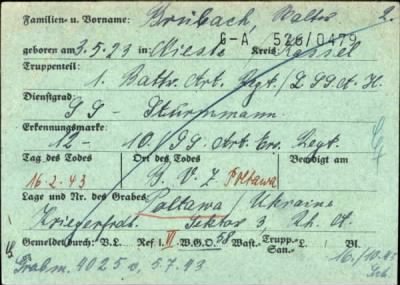 Familien- u. Vorname: Brübach, Walter 2.
G-A 526/0479
geboren am 3.5.23 in: Mieste Kreis: Kassel
Truppenteil:
1. Battr. Art. Rgt./L SS A. H.
Dienstgrad:
SS - Sturmmann
Erkennungsmarke:
-12- 10./SS. Art. Ers. Regt.
Tag des Todes Ort des Todes Beerdigt am
16.2.43 Poltawa
Lage und Nr. des Grabes: Poltawa / Ukraine
Kriegerfrdh. Sektor 3
Gemeldet durch: V.L. Ref I VI W.G.O. 58 Wast.- Trupp.- San.- L. Bl.
Grabm. 4025 v. 5.7.43